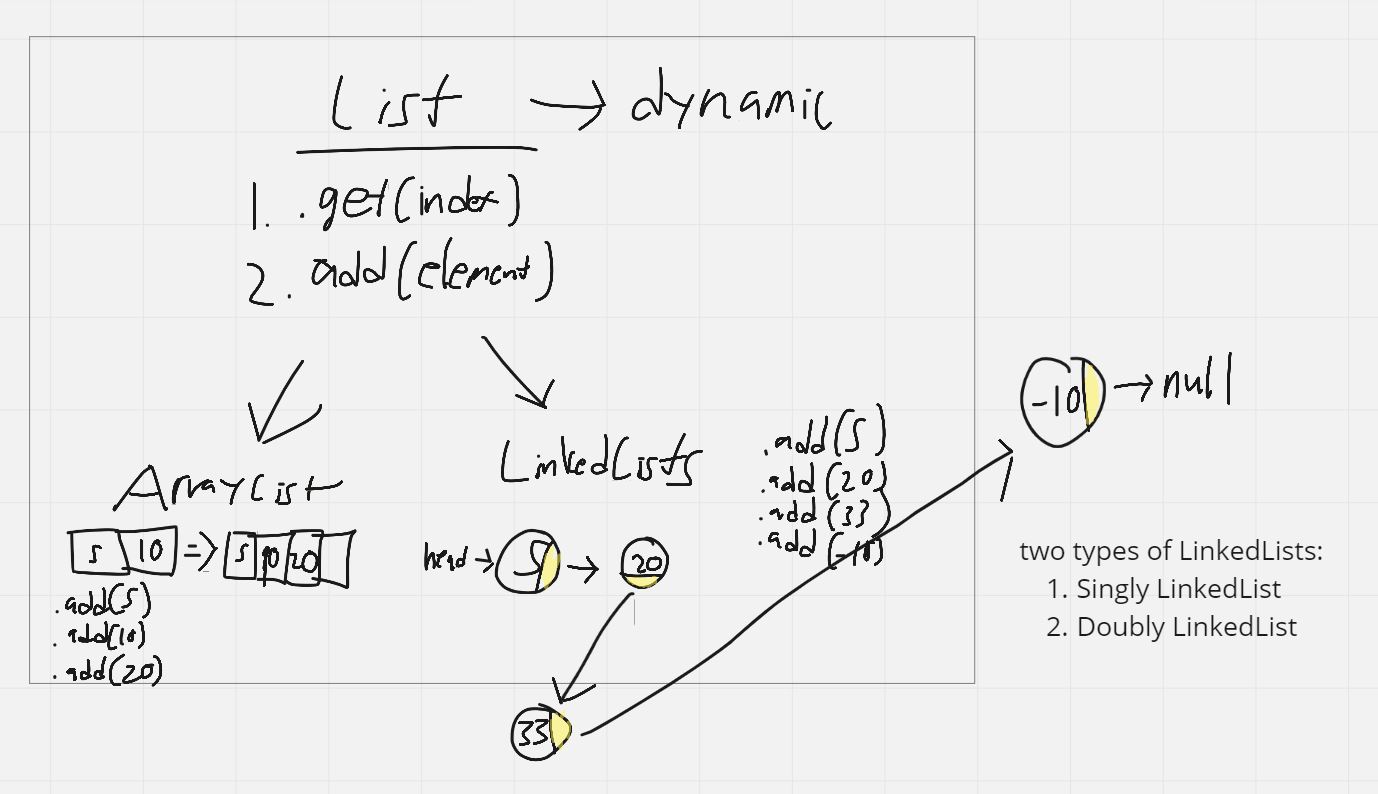 List → dynamic
1. .get(index)
2. add(element)
ArrayList
5 10 => 5 10 20
.add(5)
.add(10)
.add(20)
LinkedLists
head → 5 → 20
33
-10 → null
.add(5)
.add(20)
.add(33)
.add(-10)
two types of LinkedLists:
1. Singly LinkedList
2. Doubly LinkedList